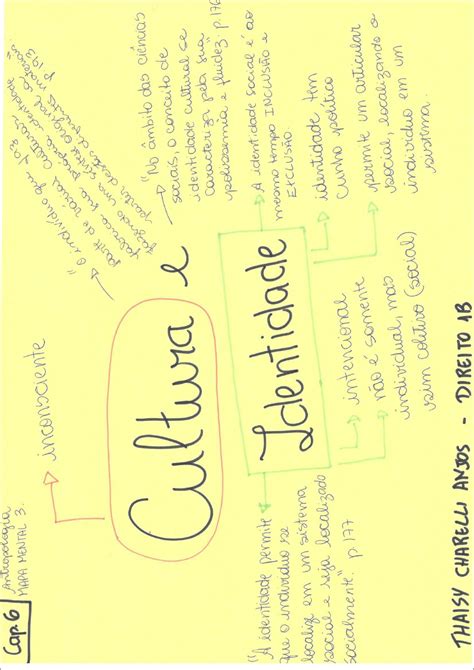 Cap. 6
Antropologia
MAPA MENTAL 3.
inconsciente
"O indivíduo que faz
parte de várias culturas
fabrica sua própria identidade
fazendo uma síntese original a
partir
"No âmbito das ciências
sociais, o conceito de
identidade cultural se
caracteriza pela sua
polissemia e fluidez. p. 176
Cultura e
Identidade
A identidade social é ao
mesmo tempo INCLUSÃO e
EXCLUSÃO
identidade tem
cunho político
permite um articular
social, localizando o
indivíduo em um
sistema.
"A identidade permite
que o indivíduo se
localize em um sistema
social e seja localizado
socialmente." p. 177
intencional
não é somente
individual, mas
sim coletivo (social)
THAISY CHARELLI ANJOS - DIREITO 1B